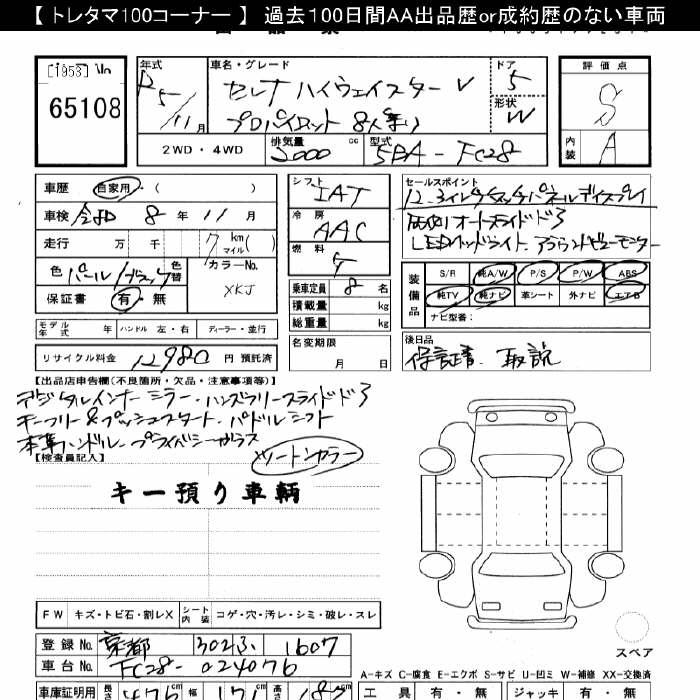 【 トレタマ100コーナー 】 過去100日間AA出品歴or成約歴のない車両
[1953] No
65108
年式 R5/11月
車名・グレード セレナ ハイウェイスター V
プロパイロット 8人乗り
ドア 5
形状 W
2WD・4WD
排気量 2000 cc
型式 5BA-FC28
評価点 S
内装 A
車歴 自家用・( )
車検 令和 8 年 11 月
走行 万 千 7 km マイル( )
色 パール/ブラック 色替
カラーNo. XKJ
保証書 有・無
モデル年式 年 ハンドル 左・右 ディーラー・並行
リサイクル料金 12980 円 預託済
シフト IAT
冷房 AAC
燃料
乗車定員 8 名
積載量 kg
総重量 kg
名変期限
月 日
セールスポイント
12.3インチタッチパネルディスプレイ
両側オートスライドドア
LEDヘッドライト アラウンドビューモニター
装備品
S/R 純A/W P/S P/W ABS
純TV 純ナビ 革シート 外ナビ エアB
ナビ型番:
後日品
保証書、取説
【出品店申告欄(不良箇所・欠品・注意事項等)】
デジタルインナーミラー・ハンズフリースライドドア
キーフリー&プッシュスタート・パドルシフト
本革ハンドル・プライバシーガラス
ツートンカラー
【検査員記入】
キー預り車輌
FW キズ・トビ石・割レX シート内装 コゲ・穴・汚レ・シミ・破レ・スレ
登録No. 京都 302ふ 1607
車台No. FC28-024076
スペア
A-キズ C-腐食 E-エクボ S-サビ U-凹ミ W-補修 XX-交換済
車庫証明用 長さ 476 cm 幅 171 cm 高さ 187
工具 有・無 ジャッキ 有・無